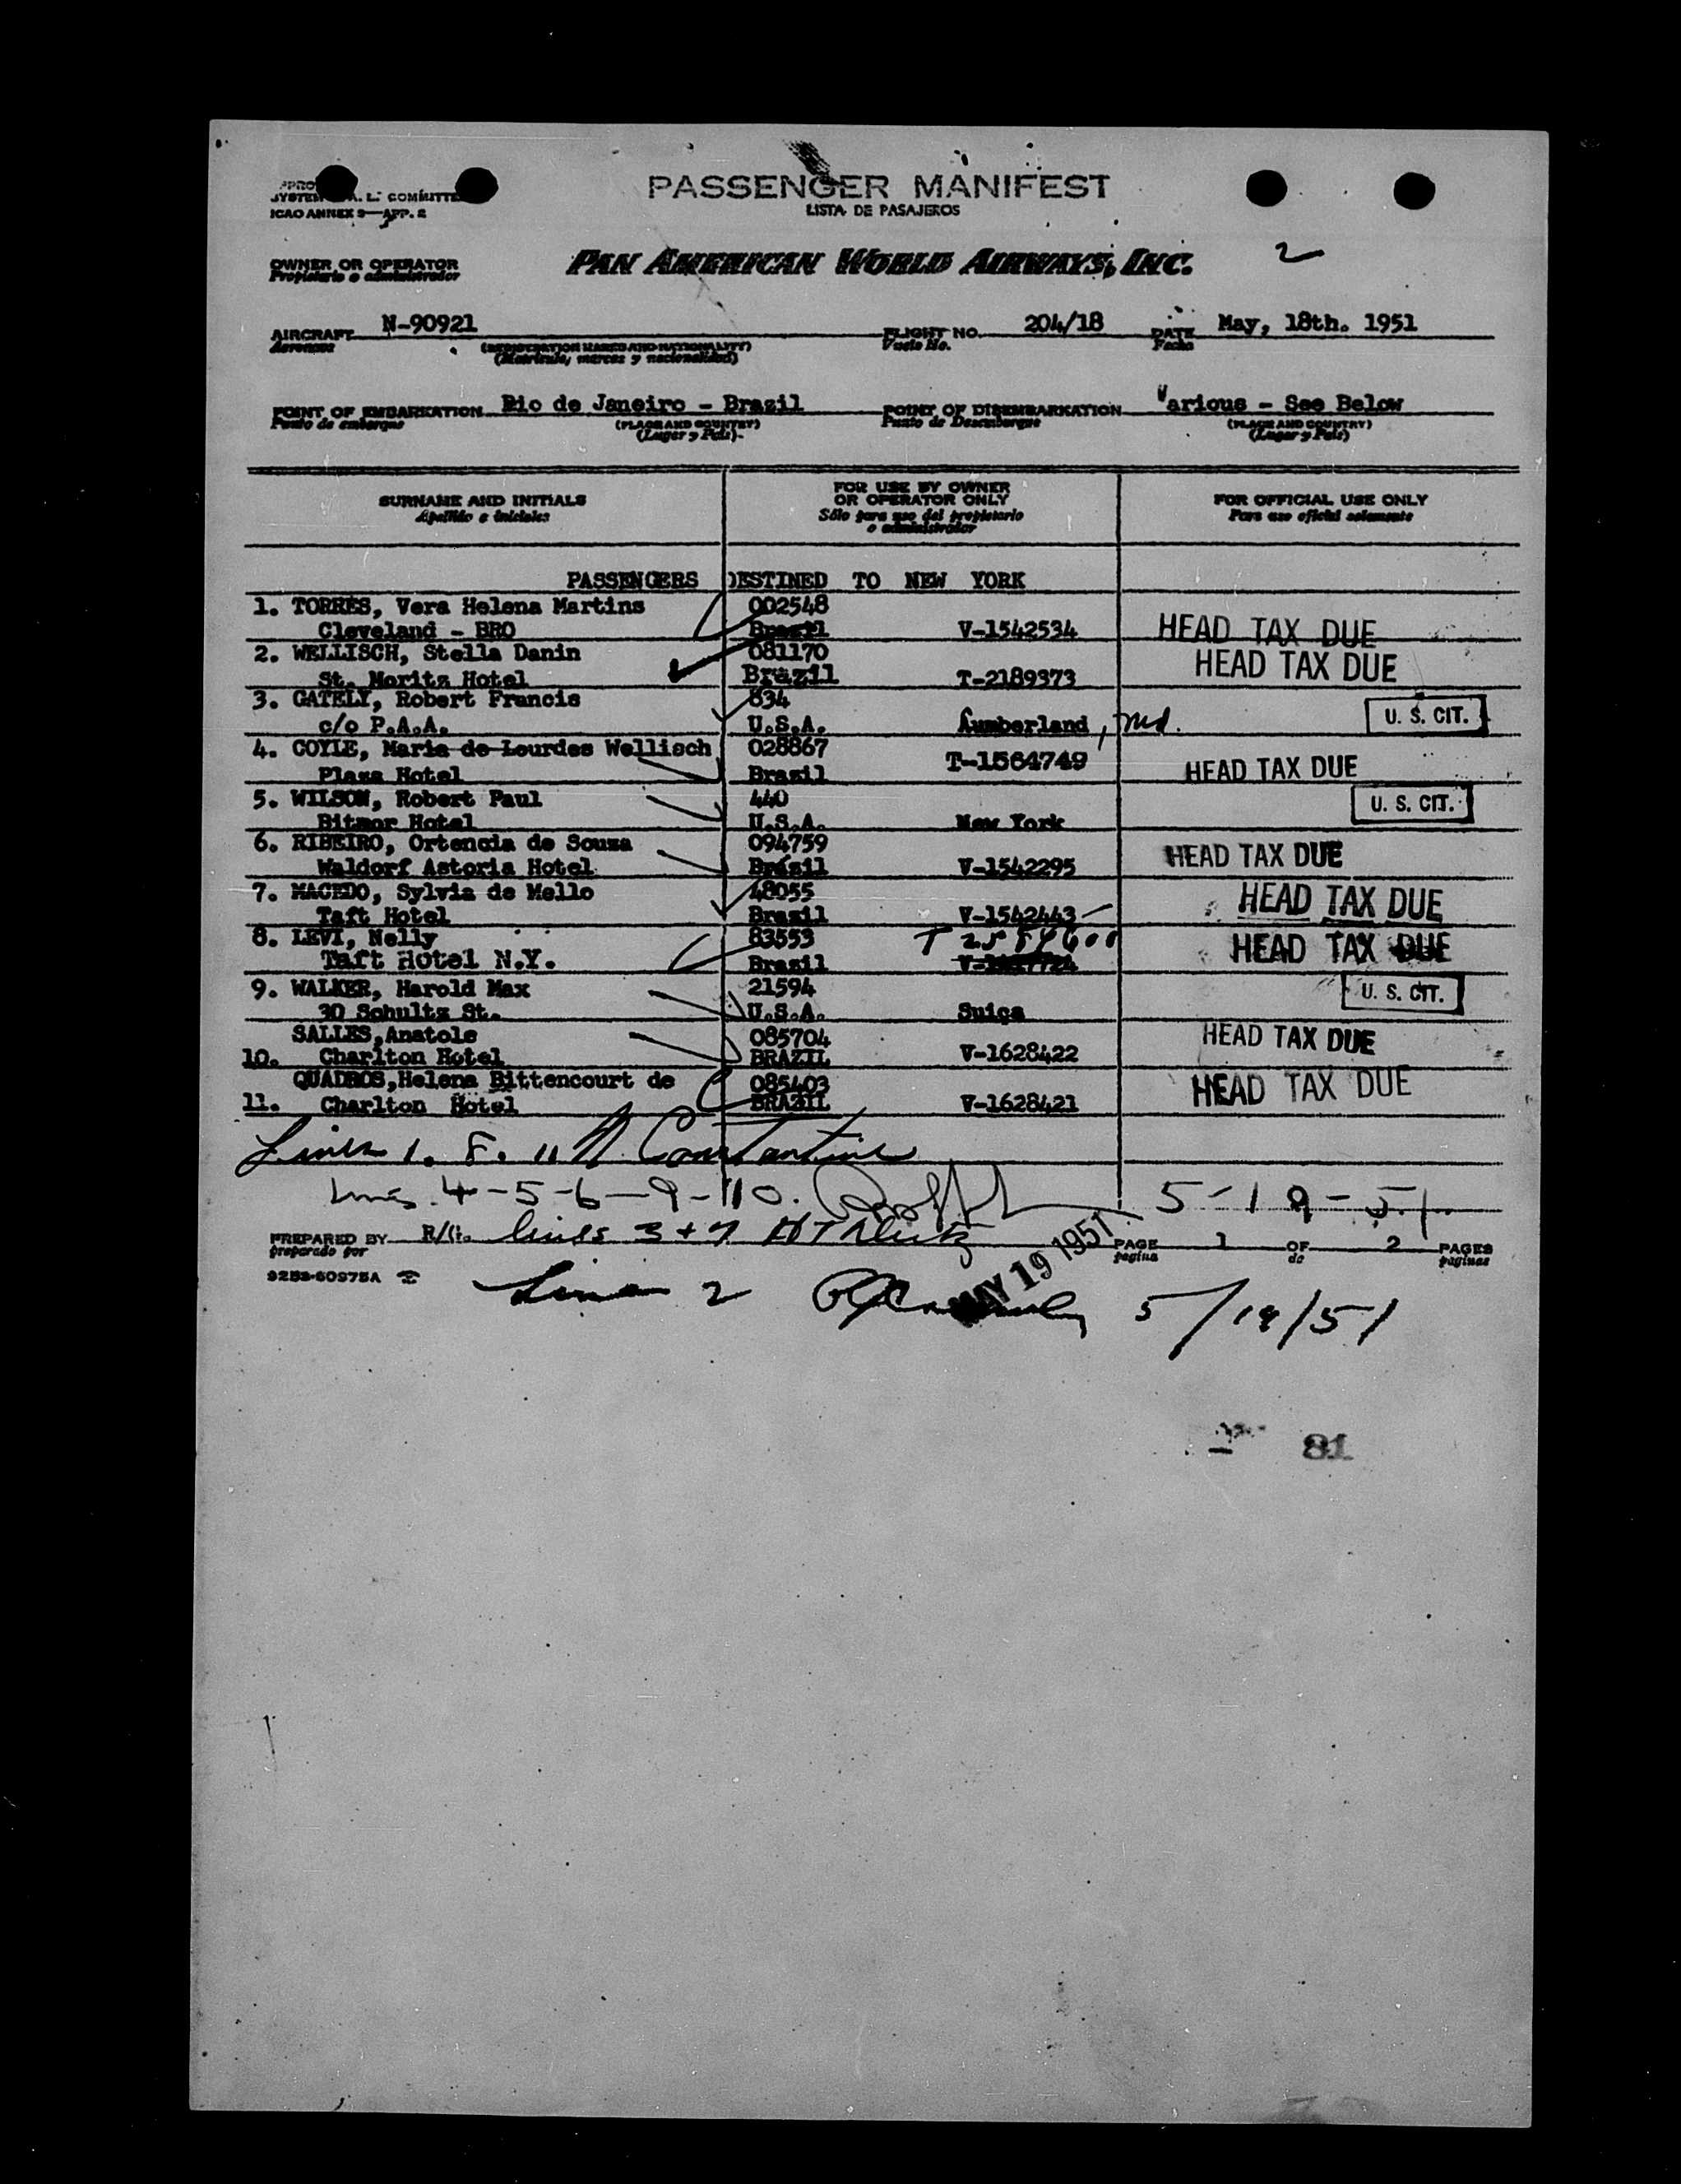 PASSENGER MANIFEST
LISTA DE PASAJEROS
ICAO ANNEX 9—APP. 2
OWNER OR OPERATOR
Propietario o administrador
PAN AMERICAN WORLD AIRWAYS, INC.
2
AIRCRAFT N-90921 FLIGHT NO. 204/18 DATE May, 18th. 1951
Aeronave (REGISTRATION MARKS AND NATIONALITY) Vuelo No. Fecha
(Matrícula, marcas y nacionalidad)
POINT OF EMBARKATION Rio de Janeiro - Brazil POINT OF DISEMBARKATION Various - See Below
Punto de embarque (PLACE AND COUNTRY) Punto de Desembarque (PLACE AND COUNTRY)
(Lugar y País) (Lugar y País)
SURNAME AND INITIALS FOR USE BY OWNER OR OPERATOR ONLY FOR OFFICIAL USE ONLY
Apellido e iniciales Sólo para uso del propietario o administrador Para uso oficial solamente
PASSENGERS DESTINED TO NEW YORK
1. TORRES, Vera Helena Martins 002548
Cleveland - BRO Brazil V-1542534 HEAD TAX DUE
2. WELLISCH, Stella Danin 081170 HEAD TAX DUE
St. Moritz Hotel Brazil T-2189373
3. GATELY, Robert Francis 834
c/o P.A.A. U.S.A. Cumberland, Md. U. S. CIT.
4. COYLE, Maria de Lourdes Wellisch 028867 T-1564749
Plaza Hotel Brasil HEAD TAX DUE
5. WILSON, Robert Paul 440 U. S. CIT.
Bitmor Hotel U.S.A. New York
6. RIBEIRO, Ortencia de Souza 094759 HEAD TAX DUE
Waldorf Astoria Hotel Brasil V-1542295
7. MACEDO, Sylvia de Mello 48055 HEAD TAX DUE
Taft Hotel Brasil V-1542443
8. LEVI, Nelly 83553 HEAD TAX DUE
Taft Hotel N.Y. Brasil
9. WALKER, Harold Max 21594 U. S. CIT.
30 Schultz St. U.S.A. Suiça
SALLES,Anatole 085704 HEAD TAX DUE
10. Charlton Hotel BRAZIL V-1628422
QUADROS,Helena Bittencourt de 085403 HEAD TAX DUE
11. Charlton Hotel BRAZIL V-1628421
Lines 1. 8. 11 Constantine
Lines 4-5-6-9-10. 5-19-51.
PREPARED BY R/G. lines 3 + 7 PAGE 1 OF 2 PAGES
preparado por pagina de paginas
MAY 19 1951
9252-60975A
Line 2 5/19/51
81